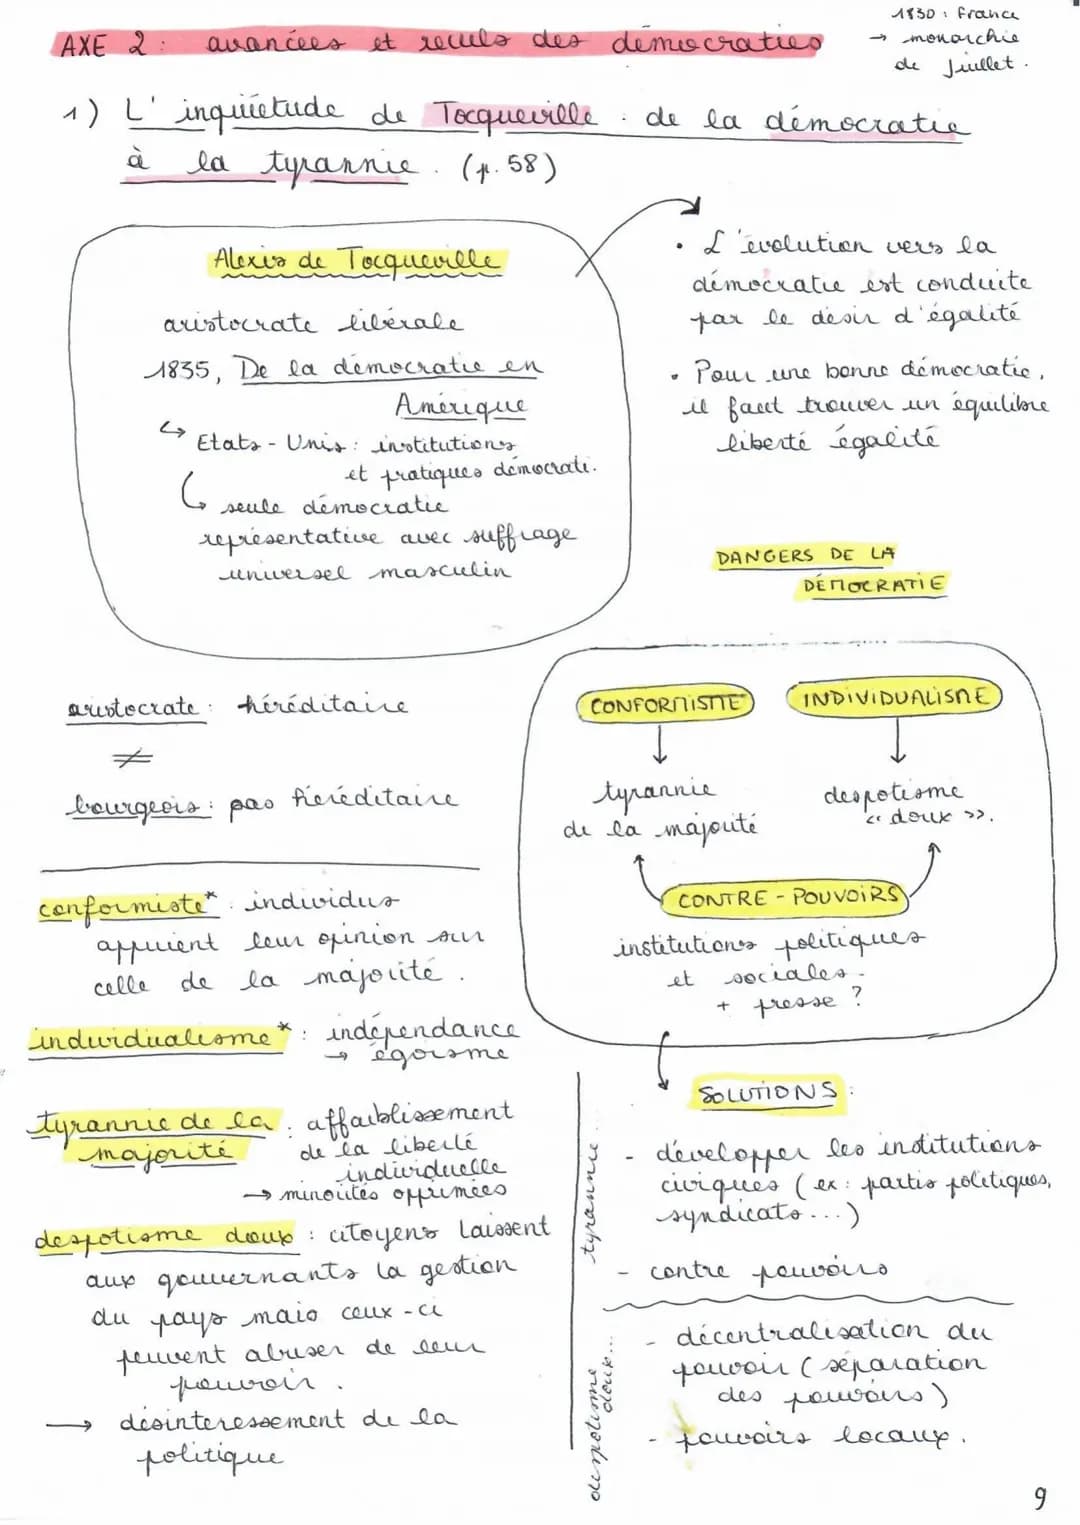 1830 : France
→ monarchie
de Juillet.
AXE 2 : avancées et reculs des démocraties
1) L'inquiétude de Tocqueville : de la démocratie
à la tyrannie. (p. 58)
Alexis de Tocqueville
aristocrate libérale
1835, De la démocratie en
Amérique
↳ Etats-Unis : institutions
et pratiques démocrati.
↳ seule démocratie
représentative avec suffrage
universel masculin
• L'évolution vers la
démocratie est conduite
par le désir d'égalité
• Pour une bonne démocratie,
il faut trouver un équilibre
liberté égalité
DANGERS DE LA
DÉMOCRATIE
aristocrate : héréditaire
≠
bourgeois : pas héréditaire
CONFORMISME
INDIVIDUALISME
tyrannie
de la majorité
despotisme
« doux ».
CONTRE-POUVOIRS
institutions politiques
et sociales.
+ presse ?
conformiste* : individus
appuient leur opinion sur
celle de la majorité.
individualisme* : indépendance
→ égoïsme
tyrannie de la majorité : affaiblissement
de la liberté
individuelle
→ minorités opprimées
despotisme doux : citoyens laissent
aux gouvernants la gestion
du pays mais ceux-ci
peuvent abuser de leur
pouvoir.
→ désinteressement de la
politique
SOLUTIONS :
tyrannie...
- développer les institutions
civiques (ex : partis politiques,
syndicats...)
- contre pouvoirs
despotisme
doux...
- décentralisation du
pouvoir (séparation
des pouvoirs)
- pouvoirs locaux.
9